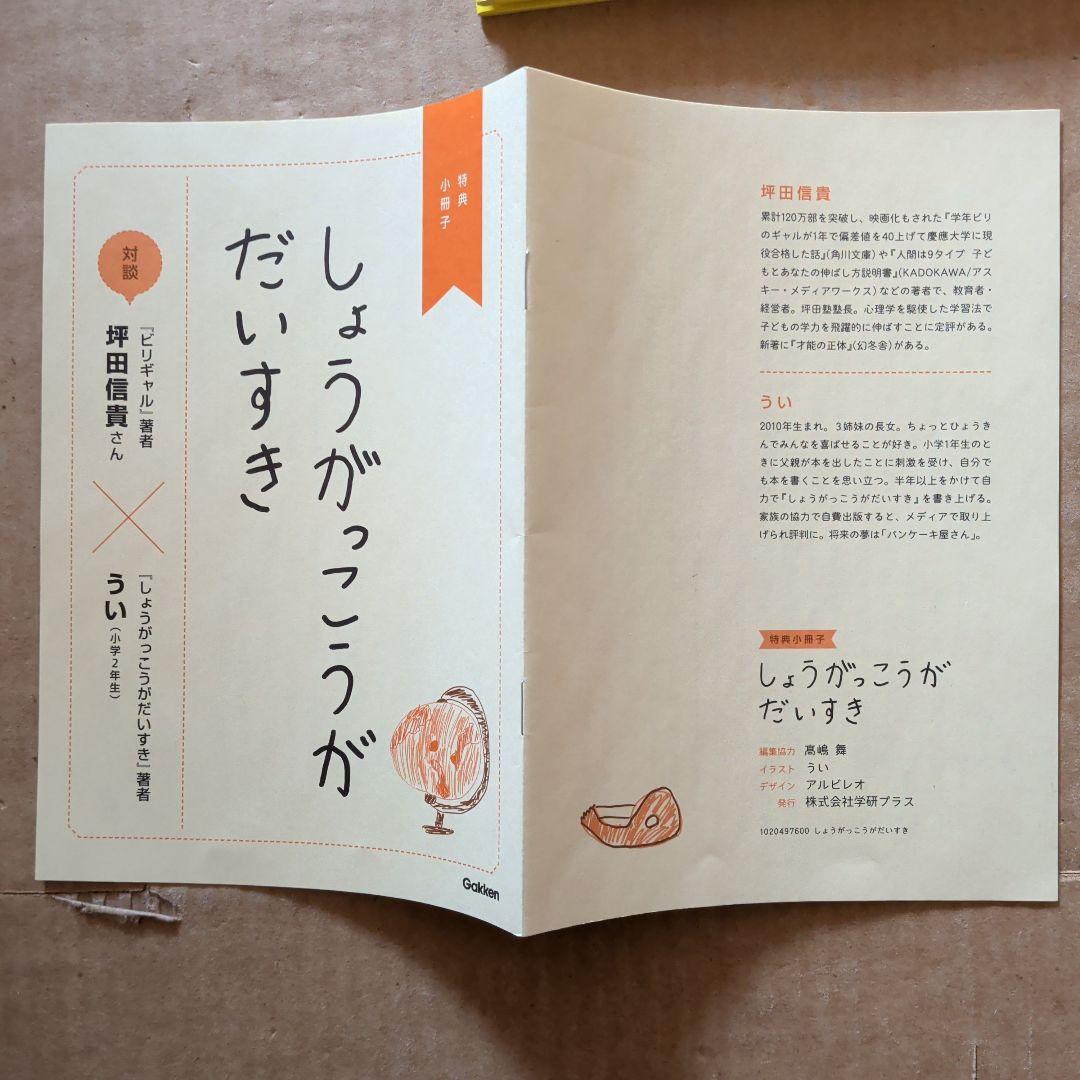 特典
小冊子
しょうがっこうが
だいすき
対談
『ビリギャル』著者
坪田信貴さん
『しょうがっこうがだいすき』著者
うい(小学2年生)
Gakken
坪田信貴
累計120万部を突破し、映画化もされた『学年ビリ
のギャルが1年で偏差値を40上げて慶應大学に現
役合格した話』(角川文庫)や『人間は9タイプ 子ど
もとあなたの伸ばし方説明書』(KADOKAWA/アス
キー・メディアワークス)などの著者で、教育者・
経営者。坪田塾塾長。心理学を駆使した学習法で
子どもの学力を飛躍的に伸ばすことに定評がある。
新著に『才能の正体』(幻冬舎)がある。
うい
2010年生まれ。3姉妹の長女。ちょっとひょうき
んでみんなを喜ばせることが好き。小学1年生のと
きに父親が本を出したことに刺激を受け、自分で
も本を書くことを思い立つ。半年以上をかけて自
力で『しょうがっこうがだいすき』を書き上げる。
家族の協力で自費出版すると、メディアで取り上
げられ評判に。将来の夢は「パンケーキ屋さん」。
特典小冊子
しょうがっこうが
だいすき
編集協力 髙嶋 舞
イラスト うい
デザイン アルビレオ
発行 株式会社学研プラス
1020497600 しょうがっこうがだいすき